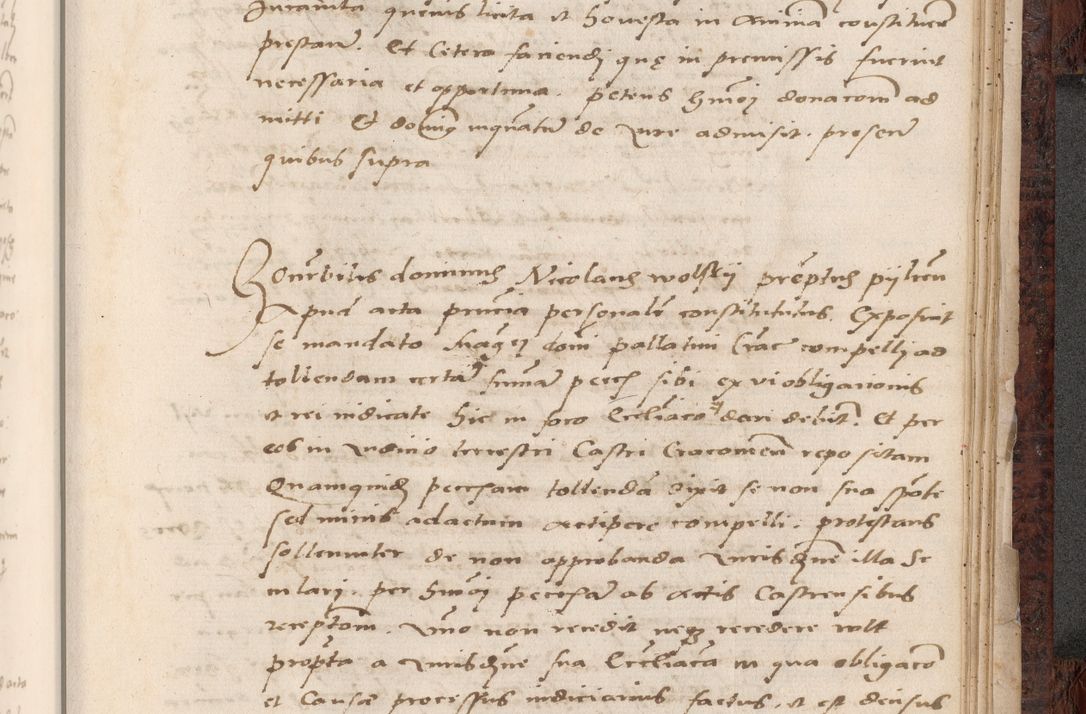 Juramenta quevis licita et honesta in animam constituen
prestare. Et cetera faciendi quę in premissis fuerint
necessaria et opportuna. petens hmoi donacom ad
mitti Et dominus inquantu de Jure admisit. presen
quibus supra
Honorbilis dominus Nicolaus wolskij prepus pijlicen
Apud acta principia personalr constitutus. Exposuit
se mandato Magci domi pallatini Crac compelli ad
tollendam certa summa pecc sibi ex vi obligationis
et rei iudicate hic in foro Eccliaco dari debit. Et per
eos in Judicio terrestri Castri Cracomen repositam
Quamquidem peccam tollenda dixit se non sua spote
sed minis adactum accipere compelli. protestans
sollenniter de non approbanda Jurisdne illa Se
culari. per hmoi peccia ab actis Castrensibus
receptom. Imo non recedit neque recedere vult
propta a Jurisdne sua Eccliaca in qua obligaco
et Causa processus iudiciarius factus. et est decisus